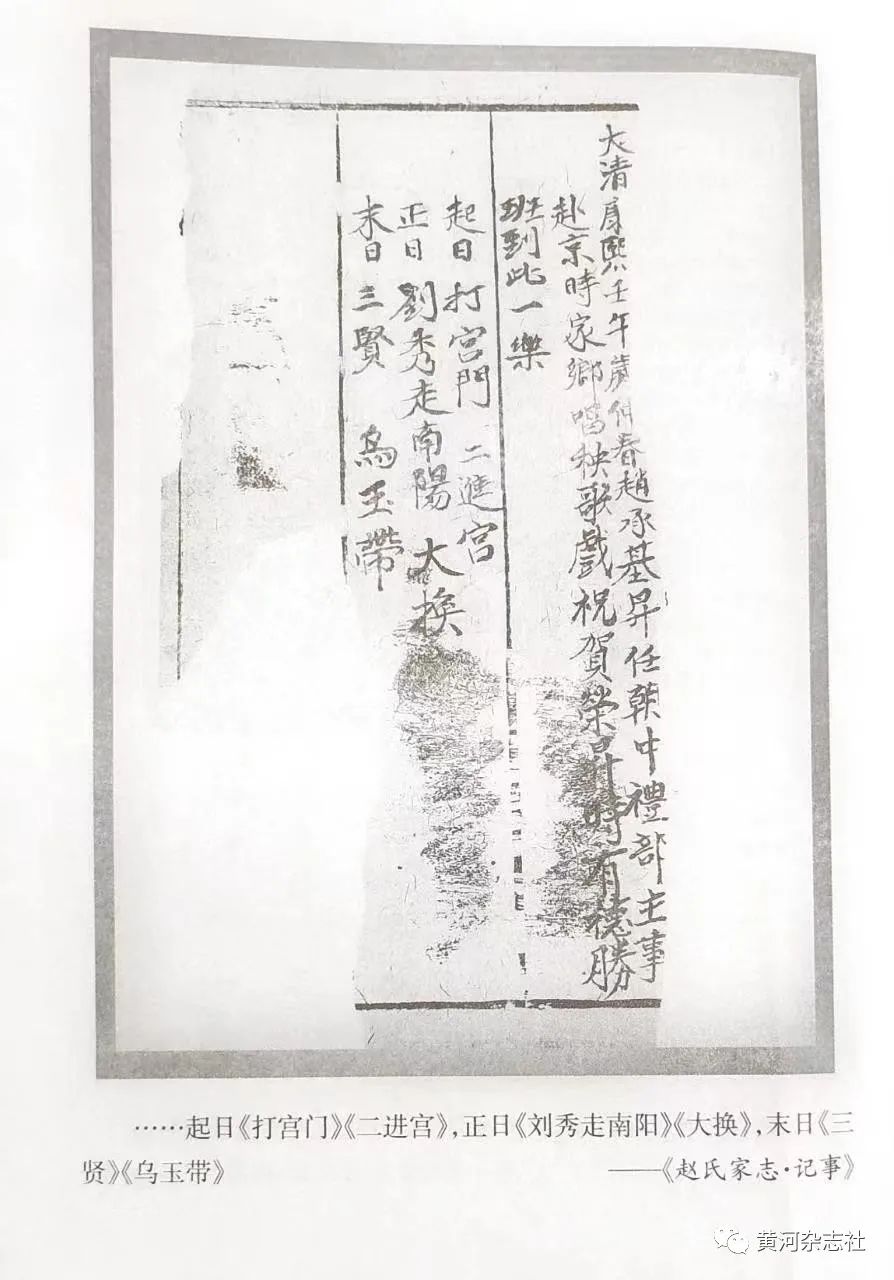 大清康熙壬午歲仲春趙承基昇任朝中禮部主事
赴京時家鄉唱秧歌戲祝賀榮昇時有德勝
班到此一樂
起日 打宮門 二進宮
正日 劉秀走南陽 大換
末日 三賢 烏玉帶
……起日《打宫门》《二进宫》,正日《刘秀走南阳》《大换》,末日《三
贤》《乌玉带》 ——《赵氏家志·记事》
黄河杂志社